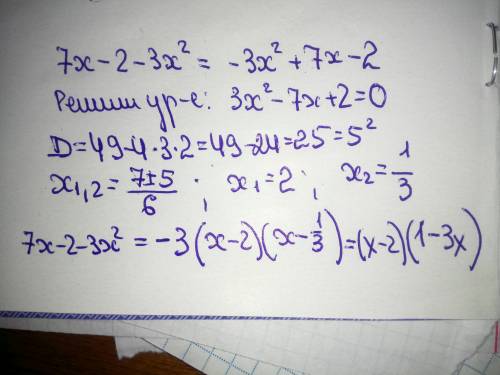 7x-2-3x² = -3x²+7x-2
Решим ур-е: 3x²-7x+2=0
D=49-4·3·2=49-24=25=5²
x₁,₂=(7±5)/6; x₁=2; x₂=1/3
7x-2-3x²=-3(x-2)(x-1/3)=(x-2)(1-3x)